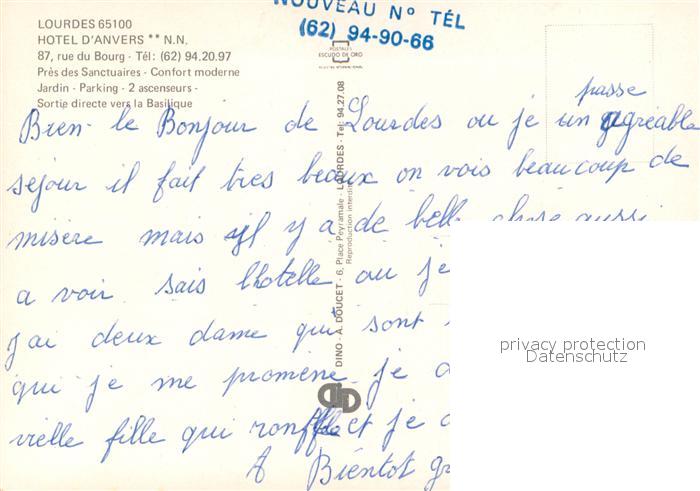 NOUVEAU N° TÉL
(62) 94-90-66
LOURDES 65100
HOTEL D'ANVERS ** N.N.
87, rue du Bourg - Tél: (62) 94.20.97
Près des Sanctuaires - Confort moderne
Jardin - Parking - 2 ascenseurs -
Sortie directe vers la Basilique
POSTALES
ESCUDO DE ORO
DINO - A. DOUCET - 6, Place Peyramale - LOURDES - Tel: 94.27.08
Reproduction interdite
passe
Bien le Bonjour de Lourdes ou je un agréable
séjour il fait tres beaux on vois beaucoup de
misère mais il y a de belle chose aussi
a voir sais l'hotelle ou je
j'ai deux dame qui sont
qui je me promène je
vielle fille qui ronfle et je
A Bientot
privacy protection
Datenschutz